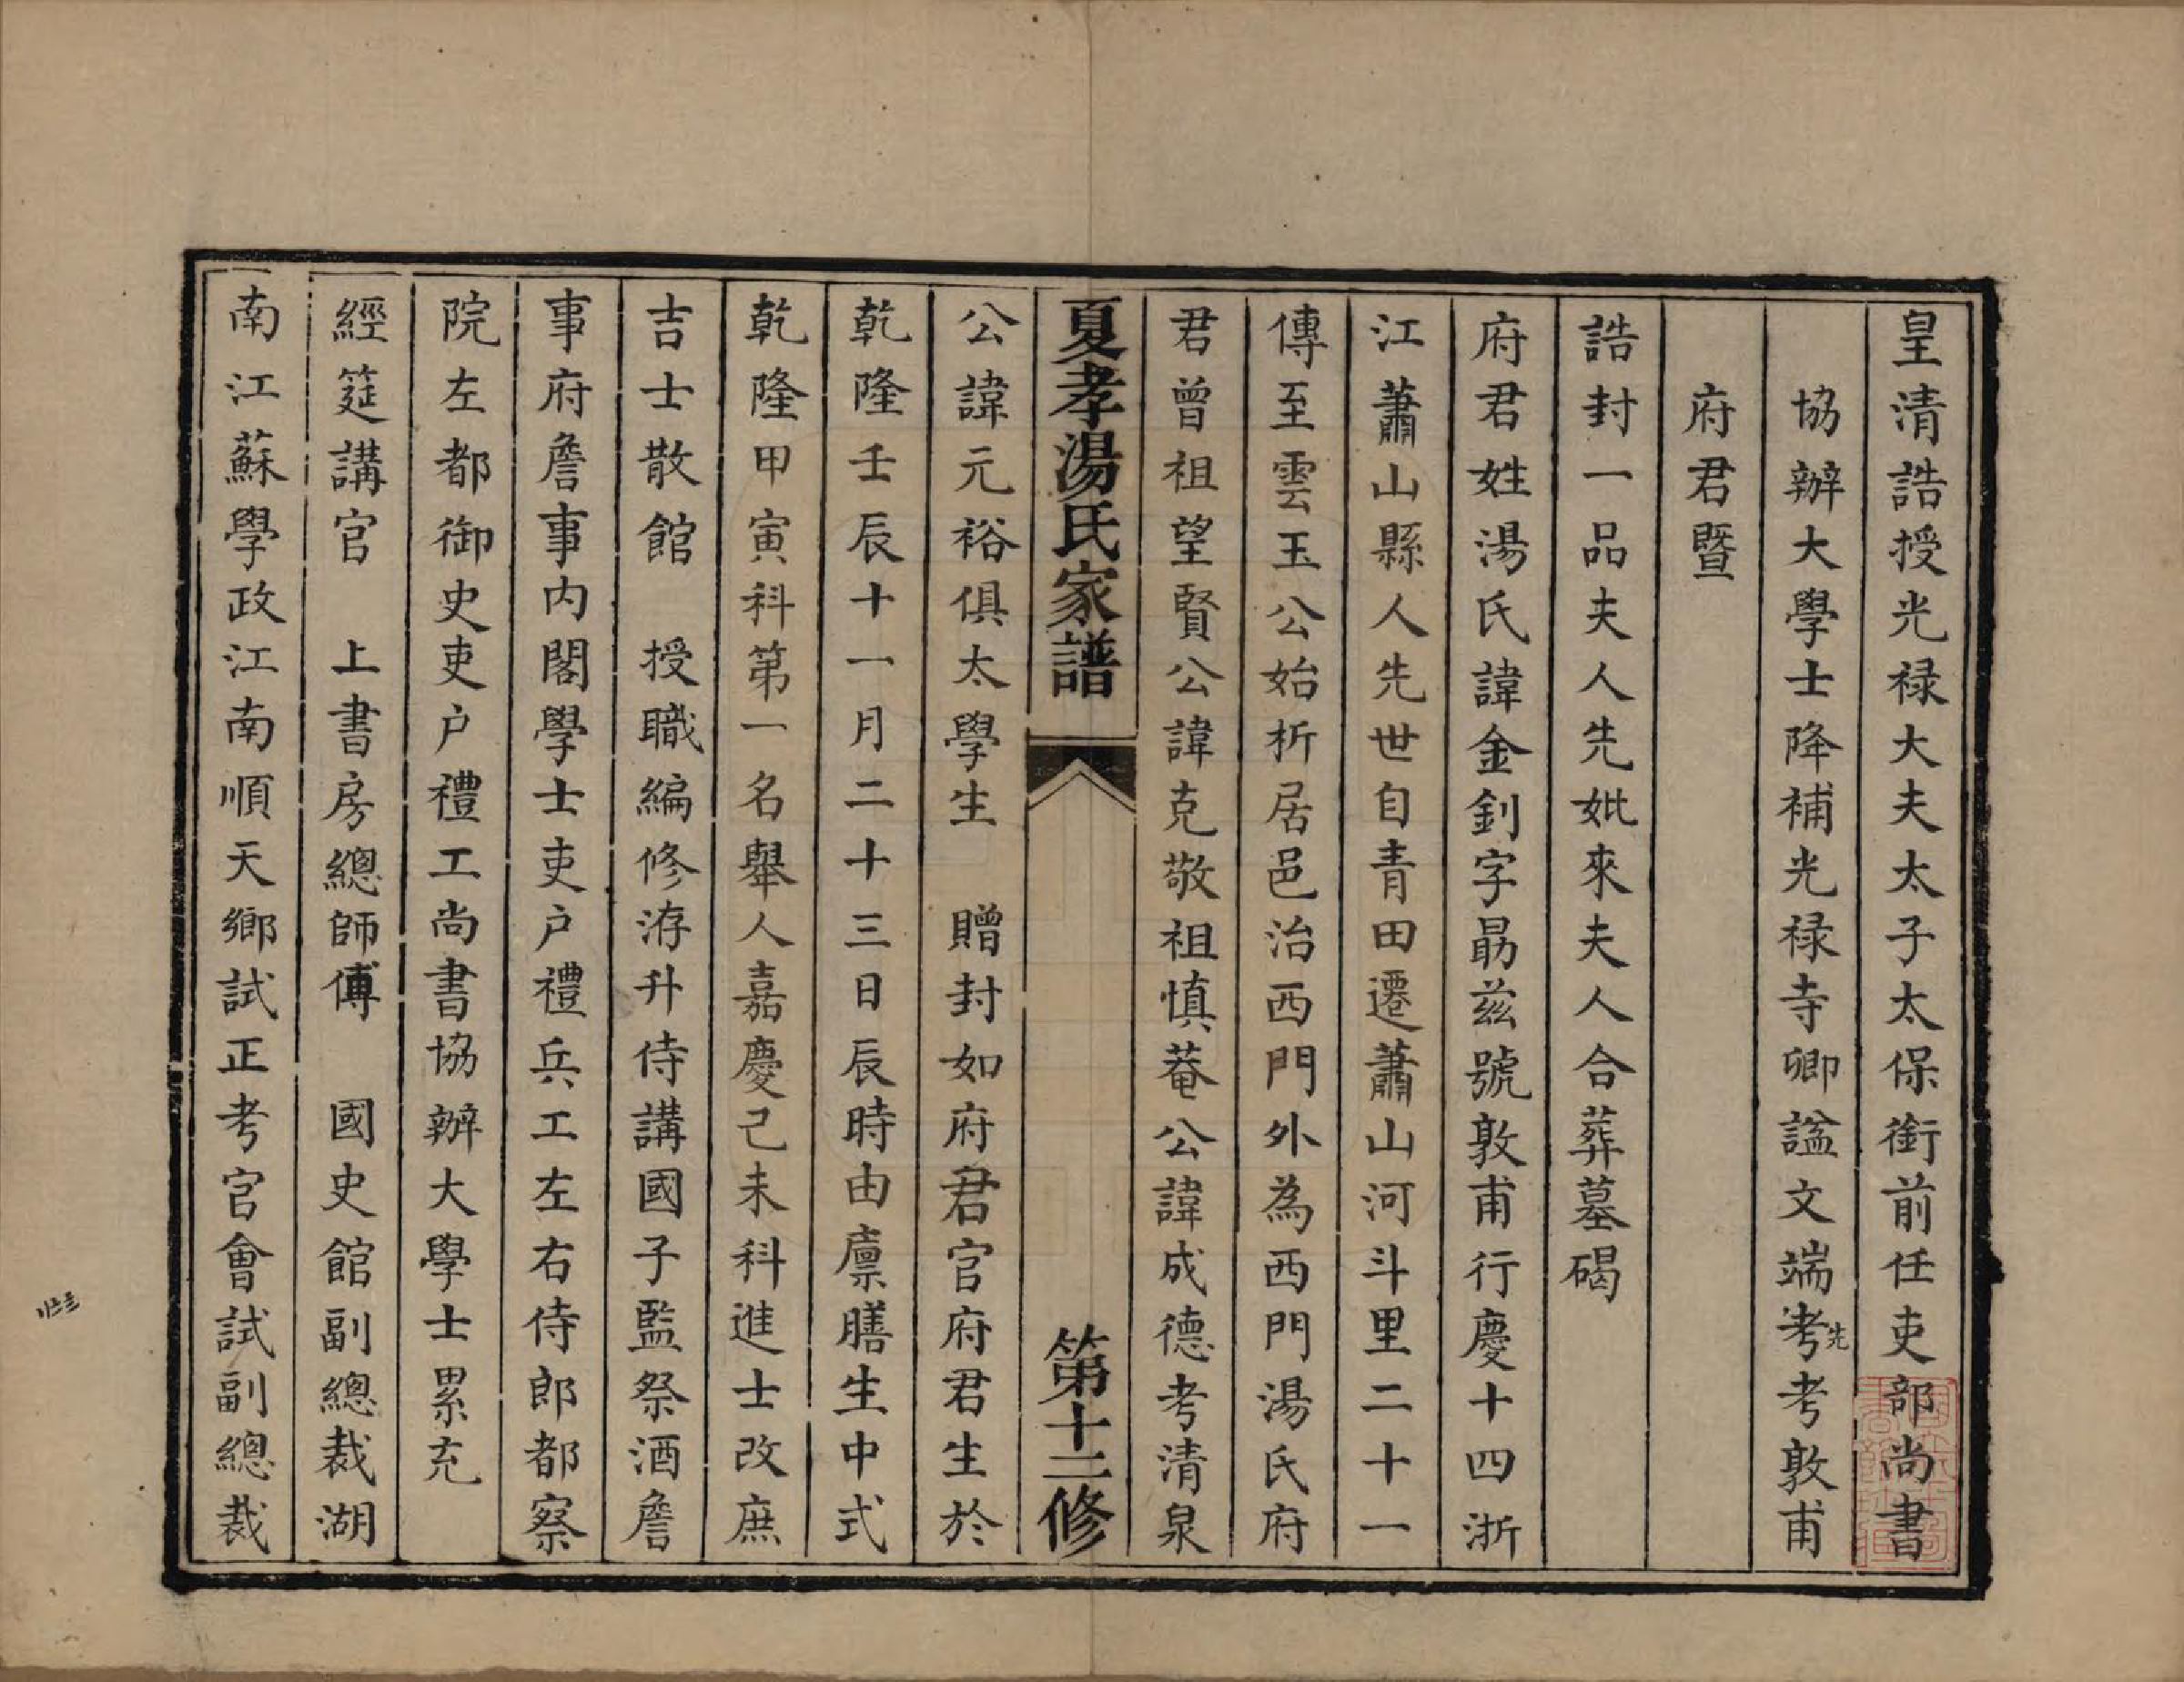 皇清誥授光祿大夫太子太保銜前任吏部尚書
協辦大學士降補光祿寺卿諡文端考先考敦甫
府君暨
誥封一品夫人先妣來夫人合葬墓碣
府君姓湯氏諱金釗字勗茲號敦甫行慶十四浙
江蕭山縣人先世自青田遷蕭山河斗里二十一
傳至雲玉公始析居邑治西門外為西門湯氏府
君曾祖望賢公諱克敬祖慎菴公諱成德考清泉
夏孝湯氏家譜 第十二修
公諱元裕俱太學生 贈封如府君官府君生於
乾隆壬辰十一月二十三日辰時由廪膳生中式
乾隆甲寅科第一名舉人嘉慶己未科進士改庶
吉士散館 授職編修洊升侍講國子監祭酒詹
事府詹事內閣學士吏戶禮兵工左右侍郎都察
院左都御史吏戶禮工尚書協辦大學士累充
經筵講官 上書房總師傅 國史館副總裁湖
南江蘇學政江南順天鄉試正考官會試副總裁